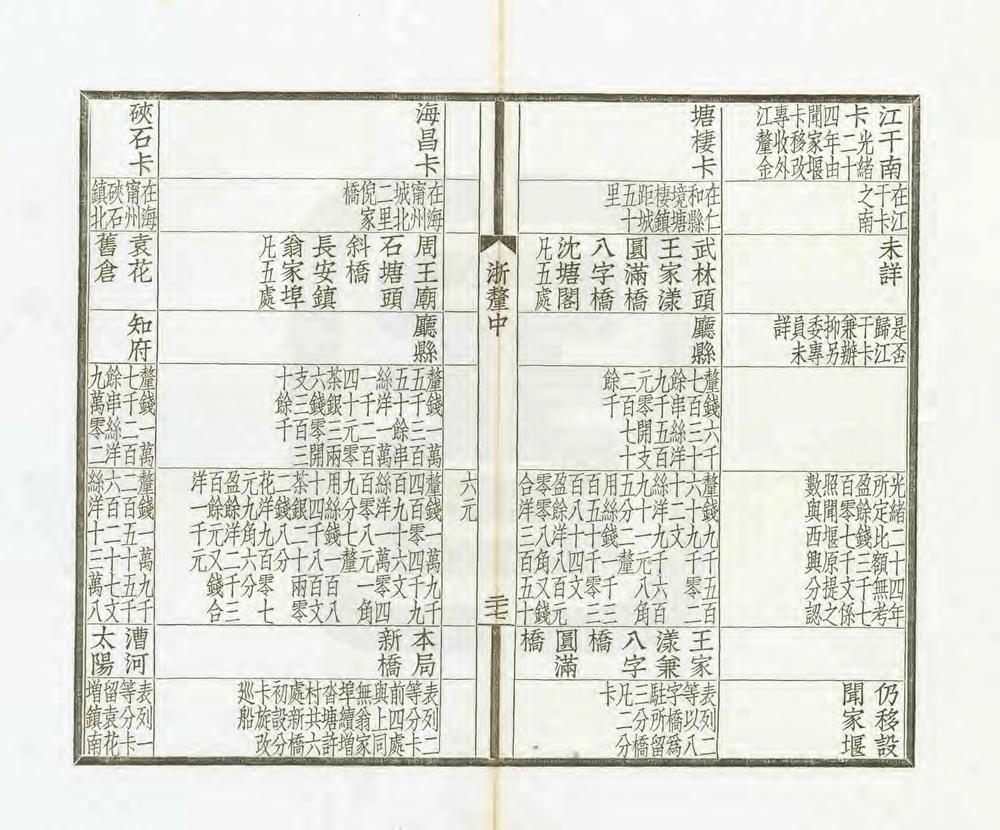 江干南
卡光緒
二十
四年由
聞家堰
卡移改
專收外
江釐金
在江
干卡
之南
未詳
是否
歸江
干卡
兼辦
抑另
委專
員未
詳
光緒二十四年
所定比額無考
盈餘錢三千七
百零七千文係
照聞堰原提之
數與西興分認
仍移設
聞家堰
塘棲卡
在仁
和縣
境塘
棲鎮
距城
五十
里
武林頭
王家漾
圓滿橋
八字橋
沈塘閣
凡五處
廳縣
釐錢六千
七百三十
餘串絲洋
九千五十
元零開支
二百七十
餘千
釐錢九千五百
六十九千零二
十二文
絲洋九千六百
九十一元八角
五分二釐
用絲錢一千三
百五十千零三
百八十四文
盈餘洋八百元
零零八角又錢
合洋三百五十
王家
漾兼
八字
橋
圓滿
橋
表列二
等以八
字橋為
駐所留
三分
凡二分
卡
浙釐中
二十七
六元
海昌卡
在海
甯州
城北
二里
倪家
橋
周王廟
石塘頭
斜橋
長安鎮
翁家埠
凡五處
廳縣
釐錢一萬
五千三百
五十餘串
絲洋一萬
一千二百
四十元零
茶銀三兩
六錢零開
支三百三
十餘千
釐錢一萬九千
四百零四千九
百九十六文
絲洋一萬零四
百零八元一角
九分七釐
用絲錢一百八
十四千八百文
茶銀二十兩零
二錢八分
花洋九百零七
元九角六分
盈餘洋二千三
百元又錢合
洋一千元
本局
新橋
表列二
等分卡
前四處
與上同
無翁家
埠續增
沓塘許
村共六
處新橋
初設分
卡旋改
巡船
硤石卡
在海
甯州
硤石
鎮北
袁花
舊倉
知府
釐錢一萬
七千二百
餘串絲洋
九萬零二
釐錢一萬九千
二百五十五千
六百一十七文
絲洋十三萬八
漕河
太陽
表列一
等分卡
留袁花
增鎮南